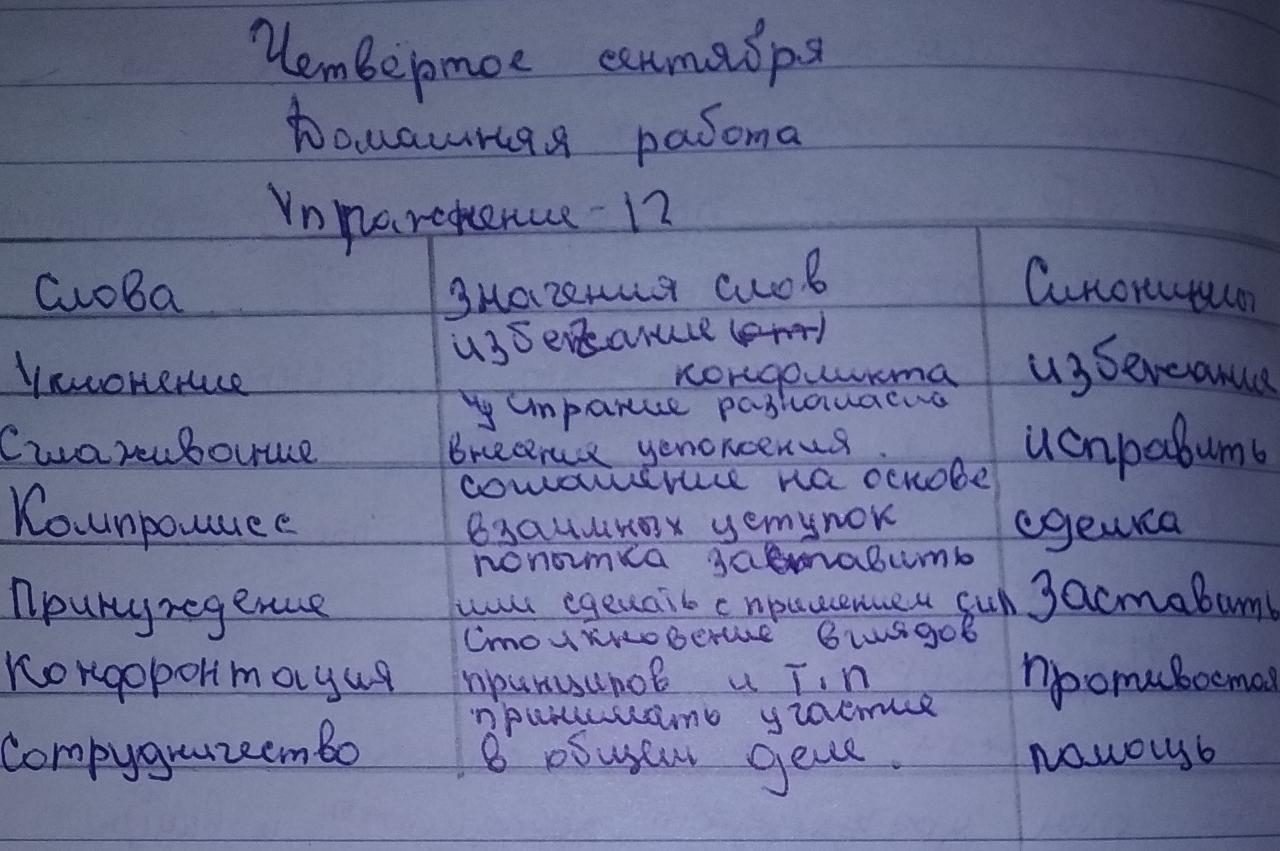 Четвёртое сентября
Домашняя работа
Упражнение - 12
Слова Значения слов Синонимы
избежание
Уклонение конфликта избежание
устрание разногласий
Сглаживание внесение успокоения. исправить
соглашение на основе
Компромисс взаимных уступок сделка
попытка заставить
Принуждение или сделать с применением сил Заставить
столкновение взглядов
Конфронтация принципов и т.п противостоя
принимать участие
Сотрудничество в общем деле. помощь